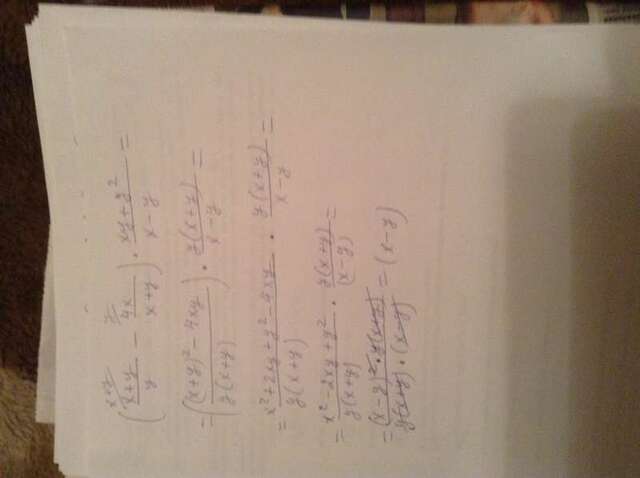 ( \frac{x+y}{y} - \frac{4x}{x+y} ) · \frac{xy+y^2}{x-y} =
= ( \frac{(x+y)^2 - 4xy}{y(x+y)} ) · \frac{y(x+y)}{x-y} =
= \frac{x^2+2xy+y^2-4xy}{y(x+y)} · \frac{y(x+y)}{x-y} =
= \frac{x^2-2xy+y^2}{y(x+y)} · \frac{y(x+y)}{(x-y)} =
= \frac{(x-y)^2 · y(x+y)}{y(x+y) · (x-y)} = (x-y)